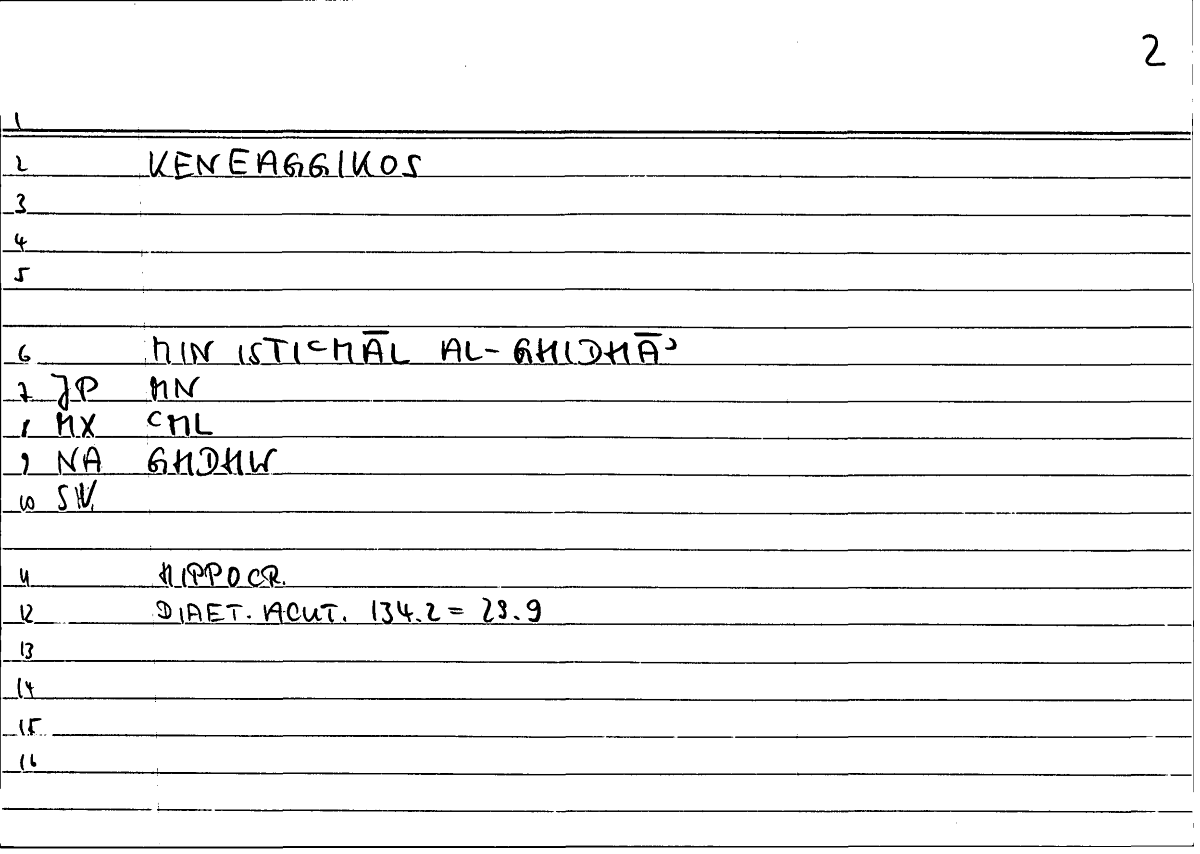 2
1
2 KENEAGGIKOS
3
4
5
6 MIN ISTIʿMĀL AL-GHIDHĀʾ
7 JP MN
8 MX ʿML
9 NA GHDHW
10 SW.
11 HIPPOCR.
12 DIAET. ACUT. 134.2 = 29.9
13
14
15
16